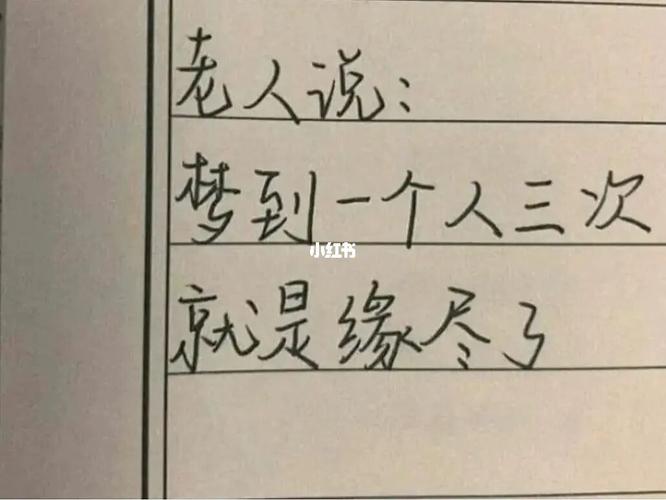 老人说:
梦到一个人三次
小红书
就是缘尽了